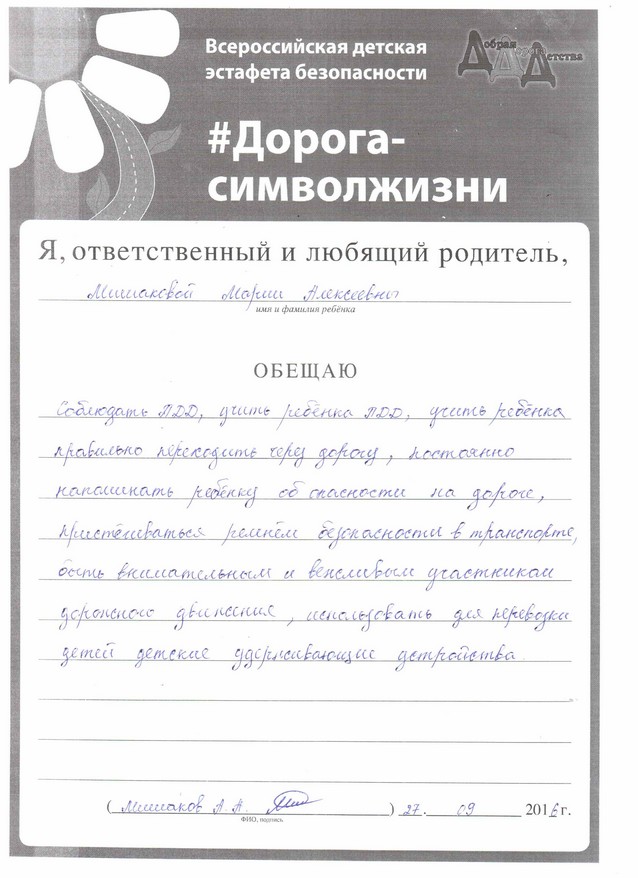 Всероссийская детская
эстафета безопасности
Добрая Дорога Детства
#Дорога-
символжизни
Я, ответственный и любящий родитель,
Мишаковой Марии Алексеевны
имя и фамилия ребёнка
ОБЕЩАЮ
Соблюдать ПДД, учить ребёнка ПДД, учить ребёнка
правильно переходить через дорогу, постоянно
напоминать ребёнку об опасности на дороге,
пристёгиваться ремнём безопасности в транспорте,
быть внимательным и вежливым участником
дорожного движения, использовать для перевозки
детей детские удерживающие устройства
( Мишаков А. А. ) 27. 09 2016 г.
ФИО, подпись